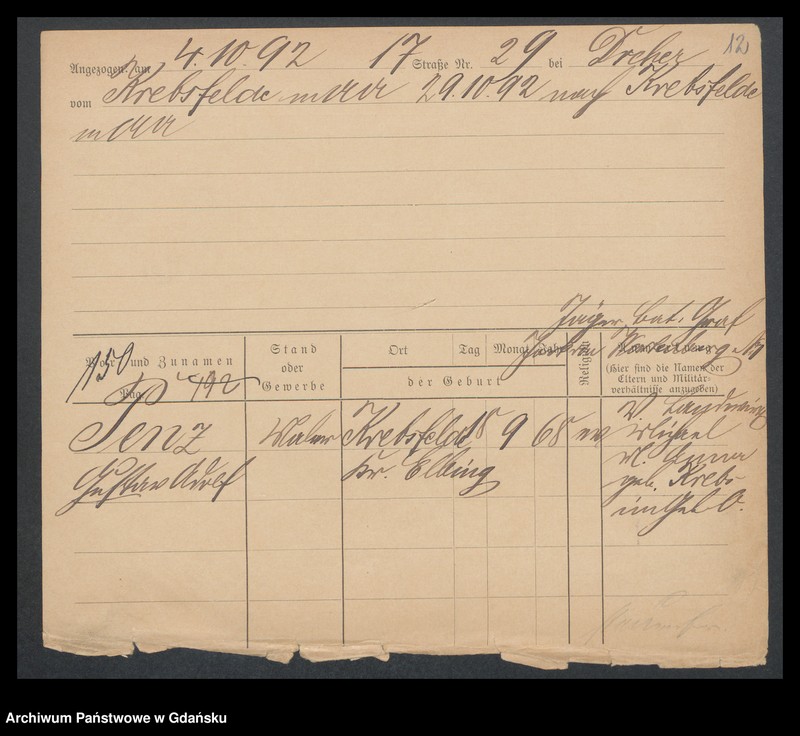 12
Angezogen: am 4.10.92 17 Straße Nr. 29 bei Dreher
vom Krebsfelde 29.10.92 nach Krebsfelde
Jäger Bat. Graf
Vor- und Zunamen
150
P 492
Stand
oder
Gewerbe
Ort Tag Monat Jahr
der Geburt
Religion
(Hier sind die Namen der
Eltern und Militär-
verhältnisse anzugeben)
Penz Maler Krebsfelde 18 9 68 ev
Gustav Adolf Kr. Elbing
V. Landwirt
Michael
M. Anna
geb. Krebs
Archiwum Państwowe w Gdańsku